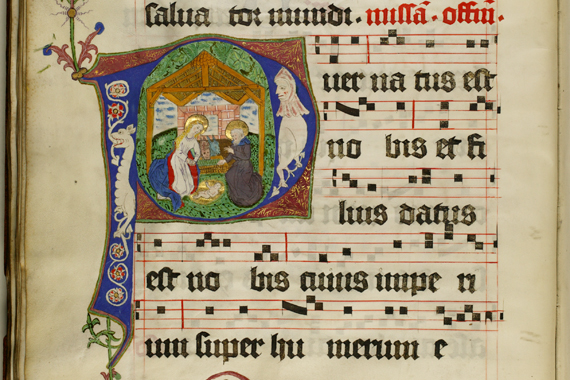 salua tor mundi. missā. offiū.
Puer na tus est
no bis et fi
lius datus
est no bis cuius impe ri
um super hu merum e